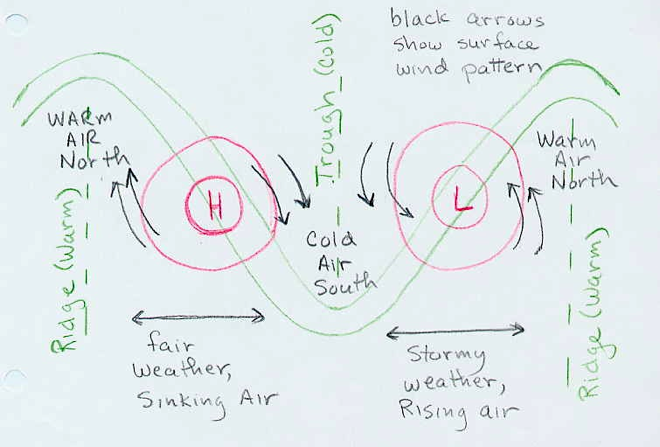 black arrows
show surface
wind pattern
Trough (Cold)
WARM
AIR
North
Warm
Air
North
H
L
Ridge (Warm)
Cold
Air
South
Ridge (Warm)
fair
weather,
Sinking Air
Stormy
weather,
Rising air